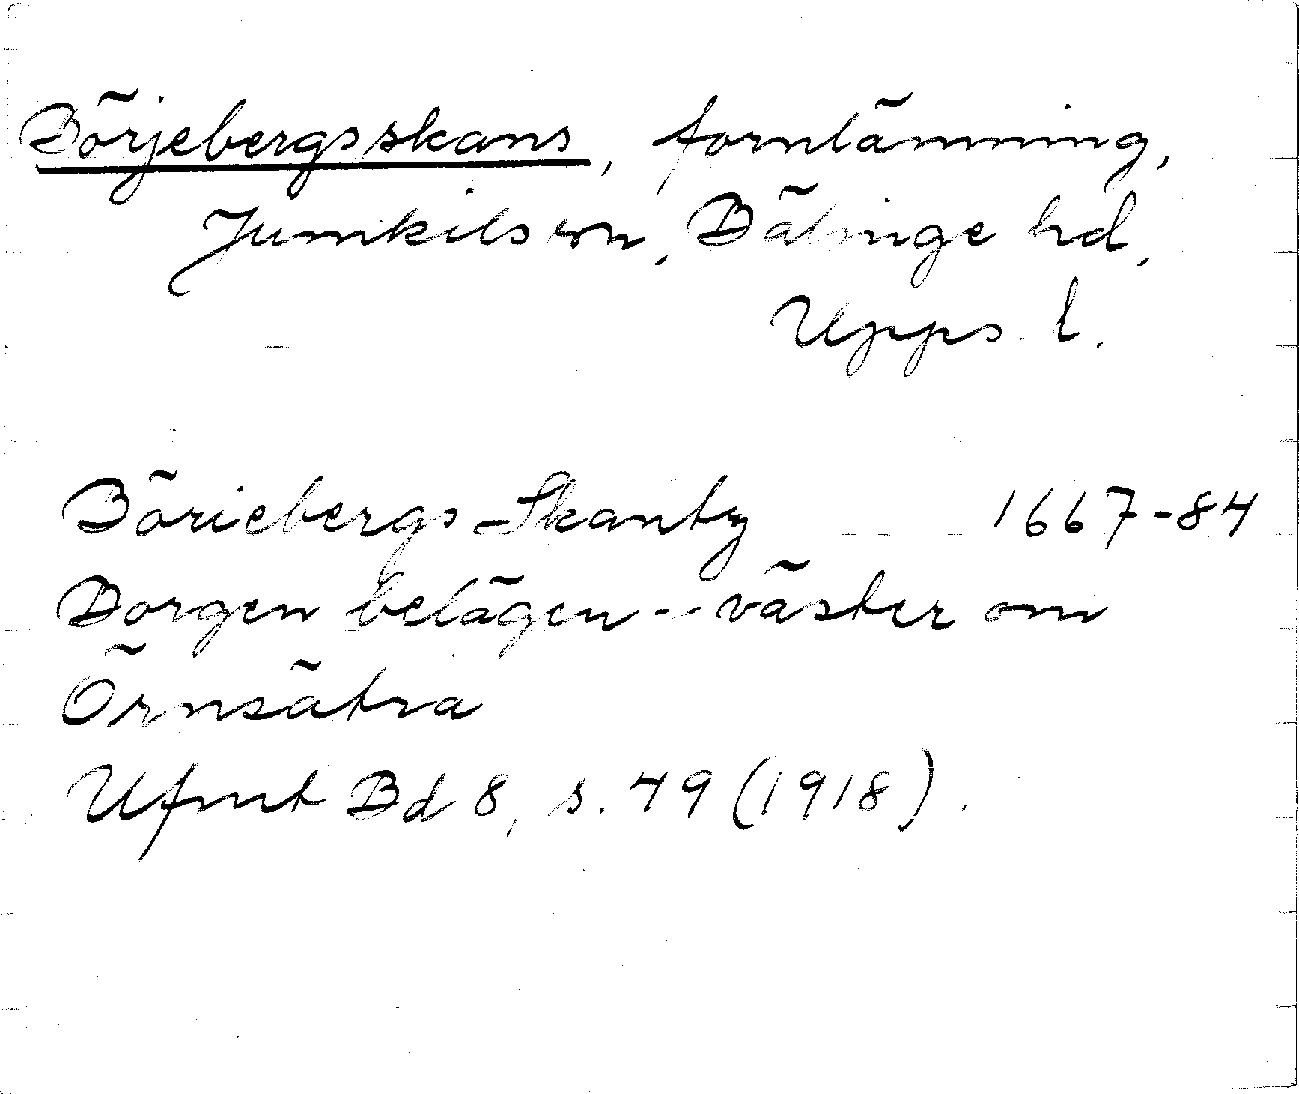 Börjebergsskans, fornlämning,
Jumkils sn, Bälinge hd,
Upps. l.
Böriebergs Skantz 1667-84
Borgen belägen -- väster om
Örnsätra
Ufmt Bd 8, s. 49 (1918).